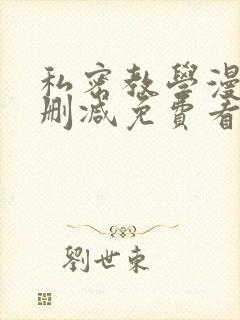 私密教學漫
刪減免費看
劉世東